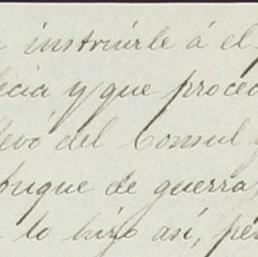 instruirle á el
y que proced
levó del Consul y
buque de guerra,
lo hizo así, per